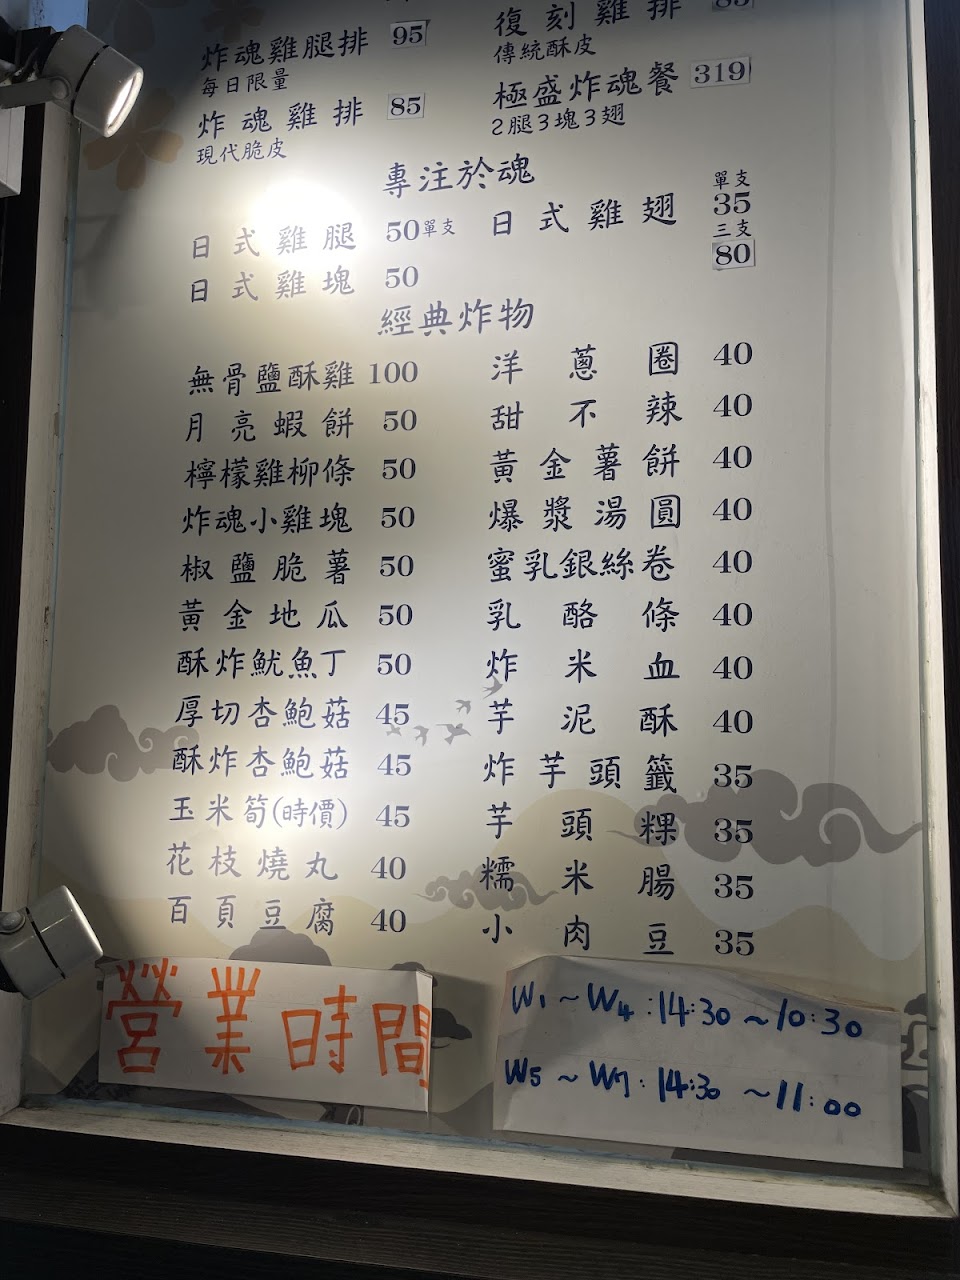 炸魂雞腿排 95
每日限量
炸魂雞排 85
現代脆皮
復刻雞排 85
傳統酥皮
極盛炸魂餐 319
2腿3塊3翅
專注於魂
日式雞腿 50 單支
日式雞塊 50
日式雞翅
單支
35
三支
80
經典炸物
無骨鹽酥雞 100
月亮蝦餅 50
檸檬雞柳條 50
炸魂小雞塊 50
椒鹽脆薯 50
黃金地瓜 50
酥炸魷魚丁 50
厚切杏鮑菇 45
酥炸杏鮑菇 45
玉米筍(時價) 45
花枝燒丸 40
百頁豆腐 40
洋蔥圈 40
甜不辣 40
黃金薯餅 40
爆漿湯圓 40
蜜乳銀絲卷 40
乳酪條 40
炸米血 40
芋泥酥 40
炸芋頭籤 35
芋頭粿 35
糯米腸 35
小肉豆 35
營業時間
W1~W4:14:30~10:30
W5~W7:14:30~11:00